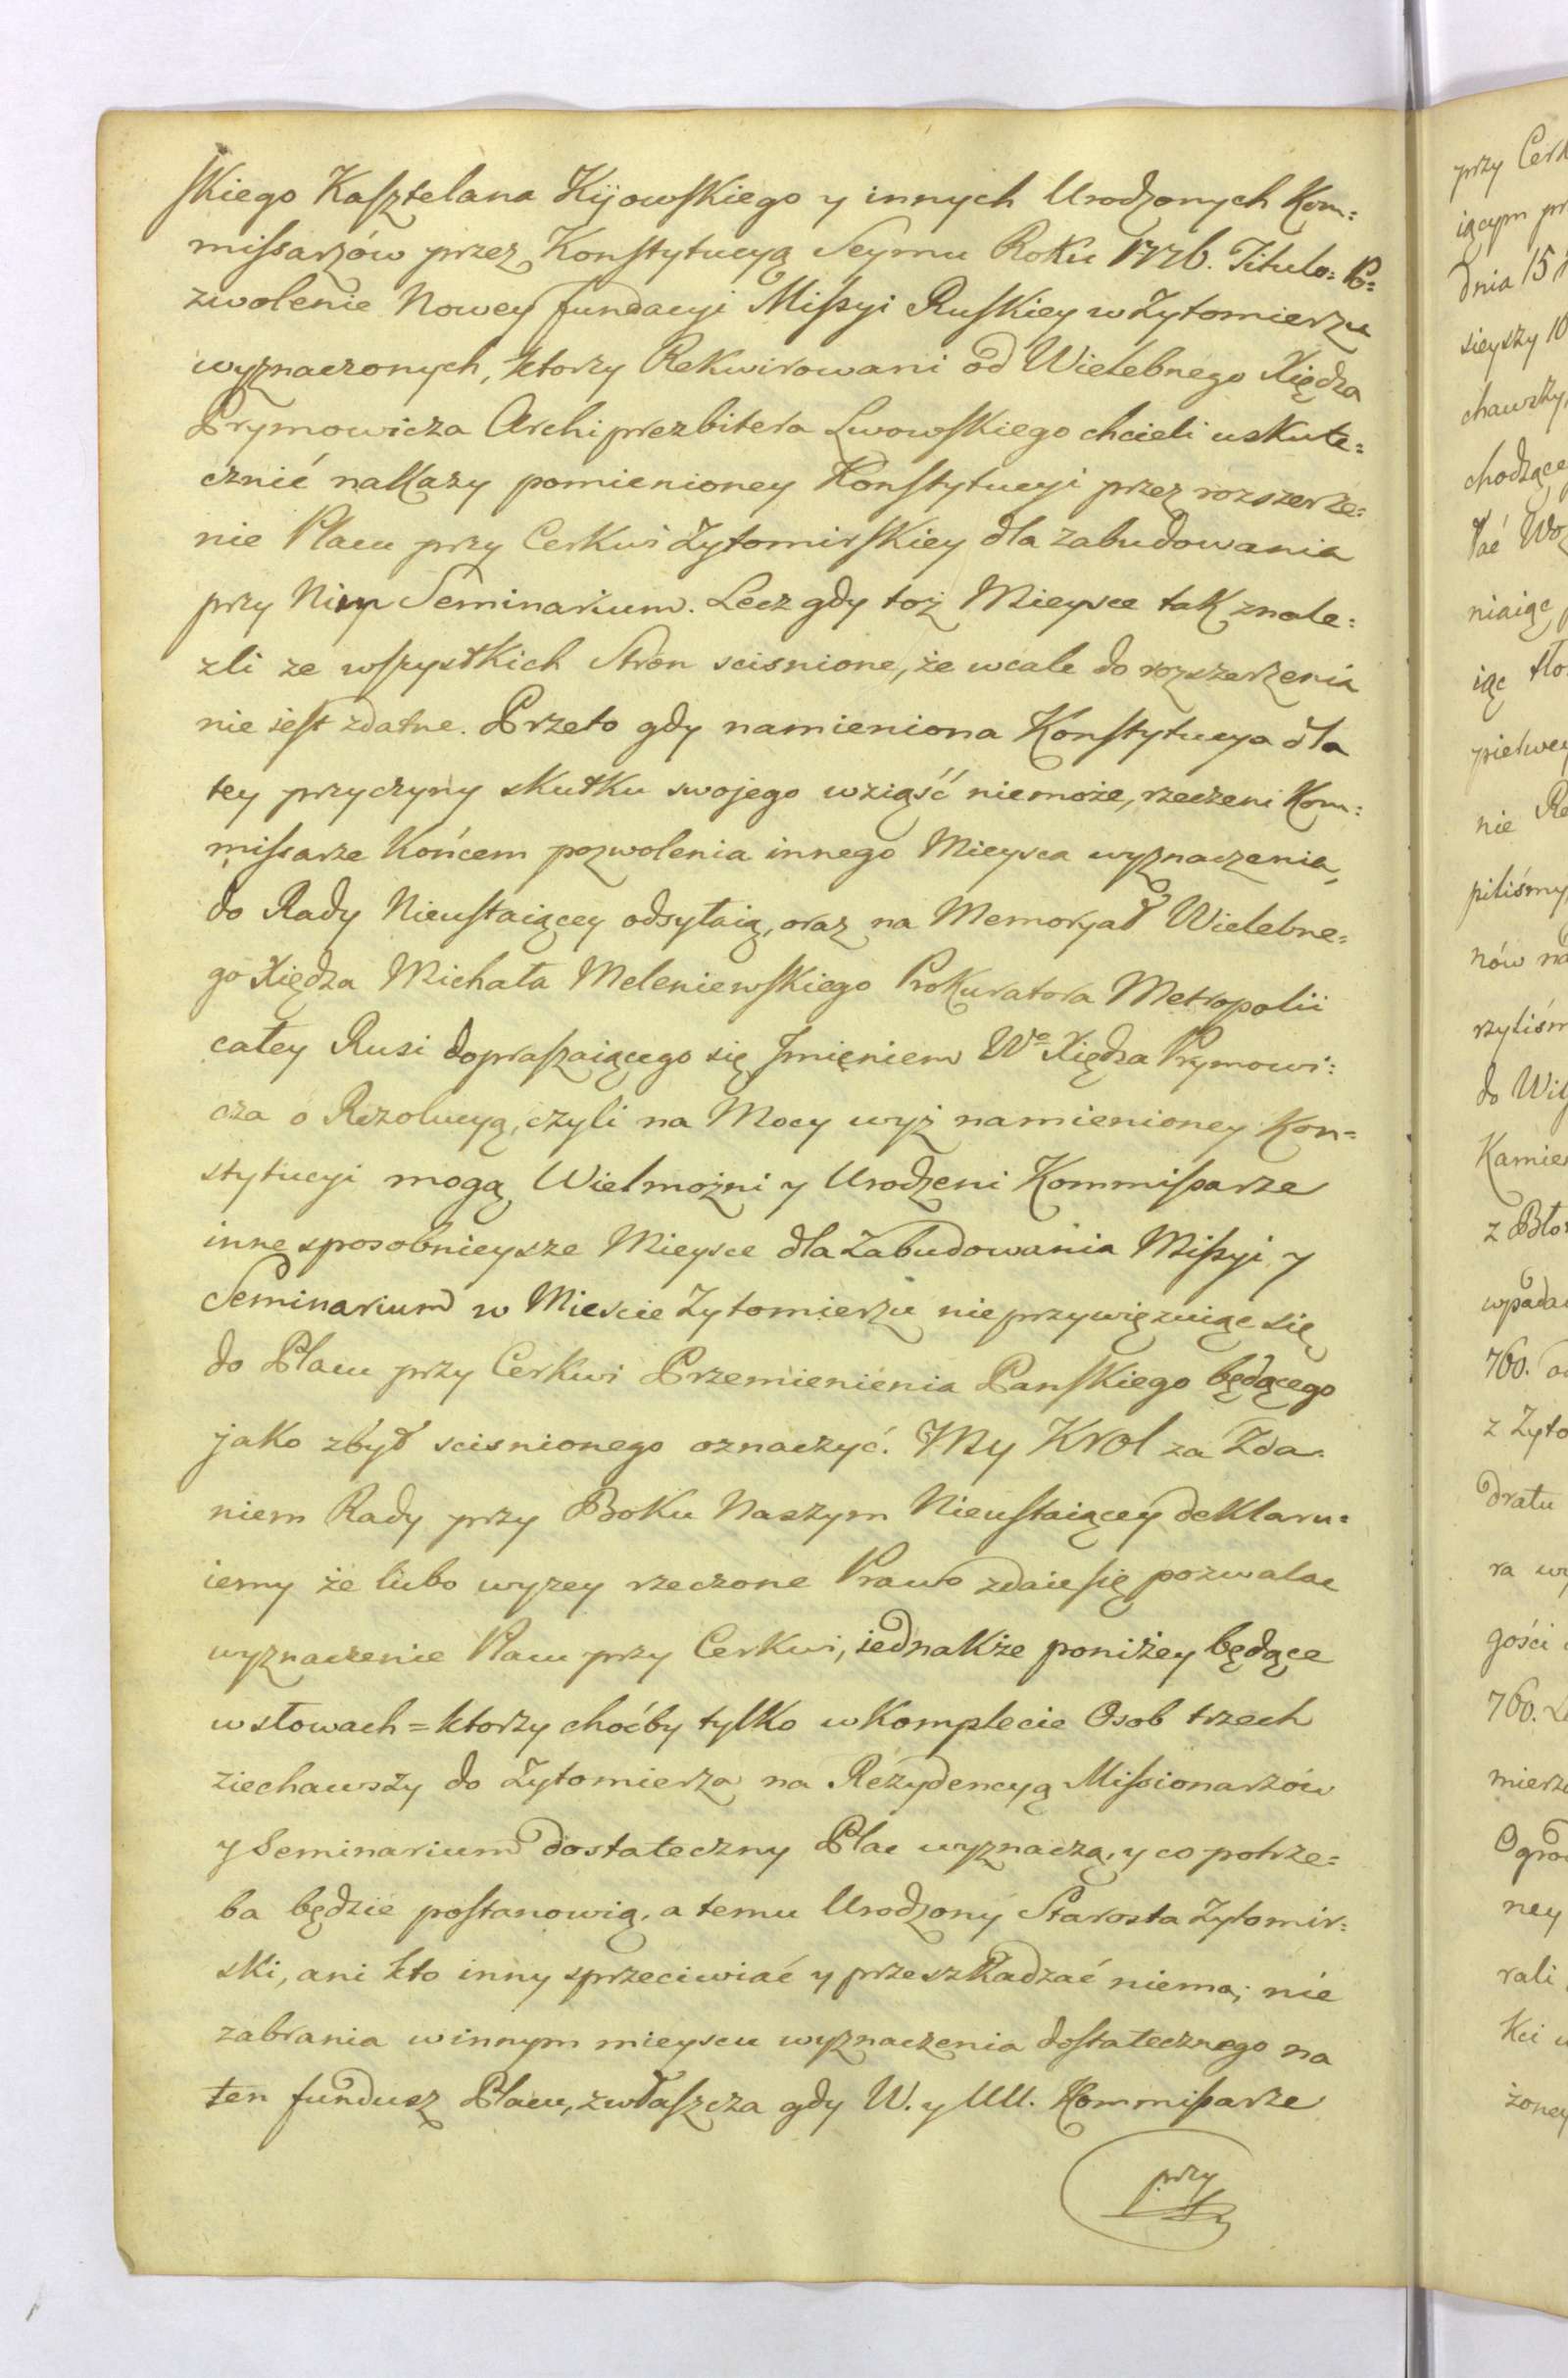 skiego Kasztelana Kijowskiego y innych Urodzonych Kom=
missarzów przez Konstytucyą Seymu Roku 1776. Titulo: Po=
zwolenie Nowey fundacyi Missyi Ruskiey w Żytomierzu
wyznaczonych, ktorzy Rekwirowani od Wielebnego Xiędza
Prymowicza Archiprezbitera Lwowskiego chcieli uskute=
cznić nakazy pomienioney Konstytucyi przez rozszerze=
nie Placu przy Cerkwi Żytomirskiey dla zabudowania
przy Niey Seminarium. Lecz gdy toż Mieysce tak znale=
zli ze wszystkich Stron scisnione, że wcale do rozszerzenia
nie iest zdatne. Przeto gdy namieniona Konstytucya dla
tey przyczyny skutku swojego wziąść niemoże, rzeczeni Kom=
missarze końcem pozwolenia innego Mieysca wyznaczenia,
do Rady Nieustaiącey odsyłaią, oraz na Memoryał Wielebne=
go Xiędza Michała Meleniewskiego Prokuratora Metropolii
całey Rusi dopraszaiącego się Jmięniem We Xiędza Prymowi=
cza o Rezolucyą, czyli na Mocy wyż namienioney Kon=
stytucyi mogą Wielmożni y Urodzeni Kommissarze
inne sposobnieysze Mieysce dla Zabudowania Missyi y
Seminarium w Miescie Zytomierzu nieprzywięzuiąc się
do Placu przy Cerkwi Przemienienia Panskiego będącego
jako zbyt scisnionego oznaczyć. My Krol za Zda=
niem Rady przy Boku Naszym Nieustaiącey deklaru=
iemy że lubo wyzey rzeczone Prawo zdaie się pozwalac
wyznaczenie Placu przy Cerkwi, iednakże poniżey będące
w słowach = ktorzy choćby tylko w Komplecie Osob trzech
ziechawszy do Żytomierza na Rezydencyą Missionarzów
y Seminarium dostateczny Plac wyznaczą, y co potrze=
ba będzie postanowią, a temu Urodzony Starosta Zytomir=
ski, ani kto inny sprzeciwiać y przeszkadzać niema; nie
zabrania w innym mieyscu wyznaczenia dostatecznego na
ten fundusz Placu, zwłaszcza gdy W. y UU. Kommissarze
przy
przy Cerk
iącym pr
dnia 15
sieyszy 10
chawszy
chodzące
niaiąc
iąc
nie
piliśmy
nów na
rzyliśm
do Wi
Kamie
z Bło
wpada
760.
z Zyto
dratu
ra
gości
760.
mierz
Ogro
ney
rali
kci
żoney